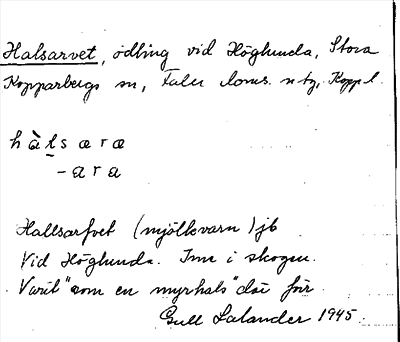 Halsarvet, odling vid Höglunda, Stora
Kopparbergs sn, Falu doms. n tg, Kopp l.
hàlsæræ
-ara
Hallsarfvet (mjölkvarn) jb
Vid Höglunda. Inn i skogen.
Varit "som en myrhals" där förr
Gull Lalander 1945.